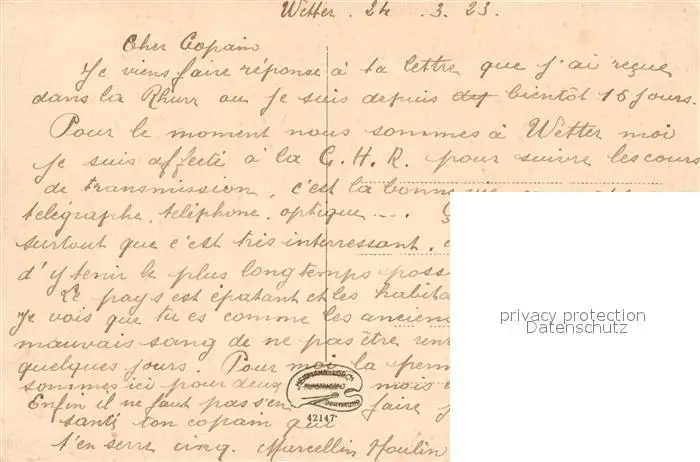 Wetter. 24. 3. 23.
Cher Copain
Je viens faire réponse à ta lettre que j'ai reçue
dans la Rhurr ou je suis depuis bientôt 15 jours.
Pour le moment nous sommes à Wetter moi
je suis affecté à la C. H. R. pour suivre les cours
de transmission, c'est la bonne
telégraphe, teléphone, optique ....
surtout que c'est tris interressant.
d'y tenir le plus longtemps poss
Le pays est épatant et les habita
Je vois que tu es comme les anciens
mauvais sang de ne pas être ren
quelques jours. Pour moi la
sommes ici pour deux mois
Enfin il ne faut pas s'en faire
santé ton copain qui
t'en serre cinq. Marcellin Houlin
privacy protection
Datenschutz
42147